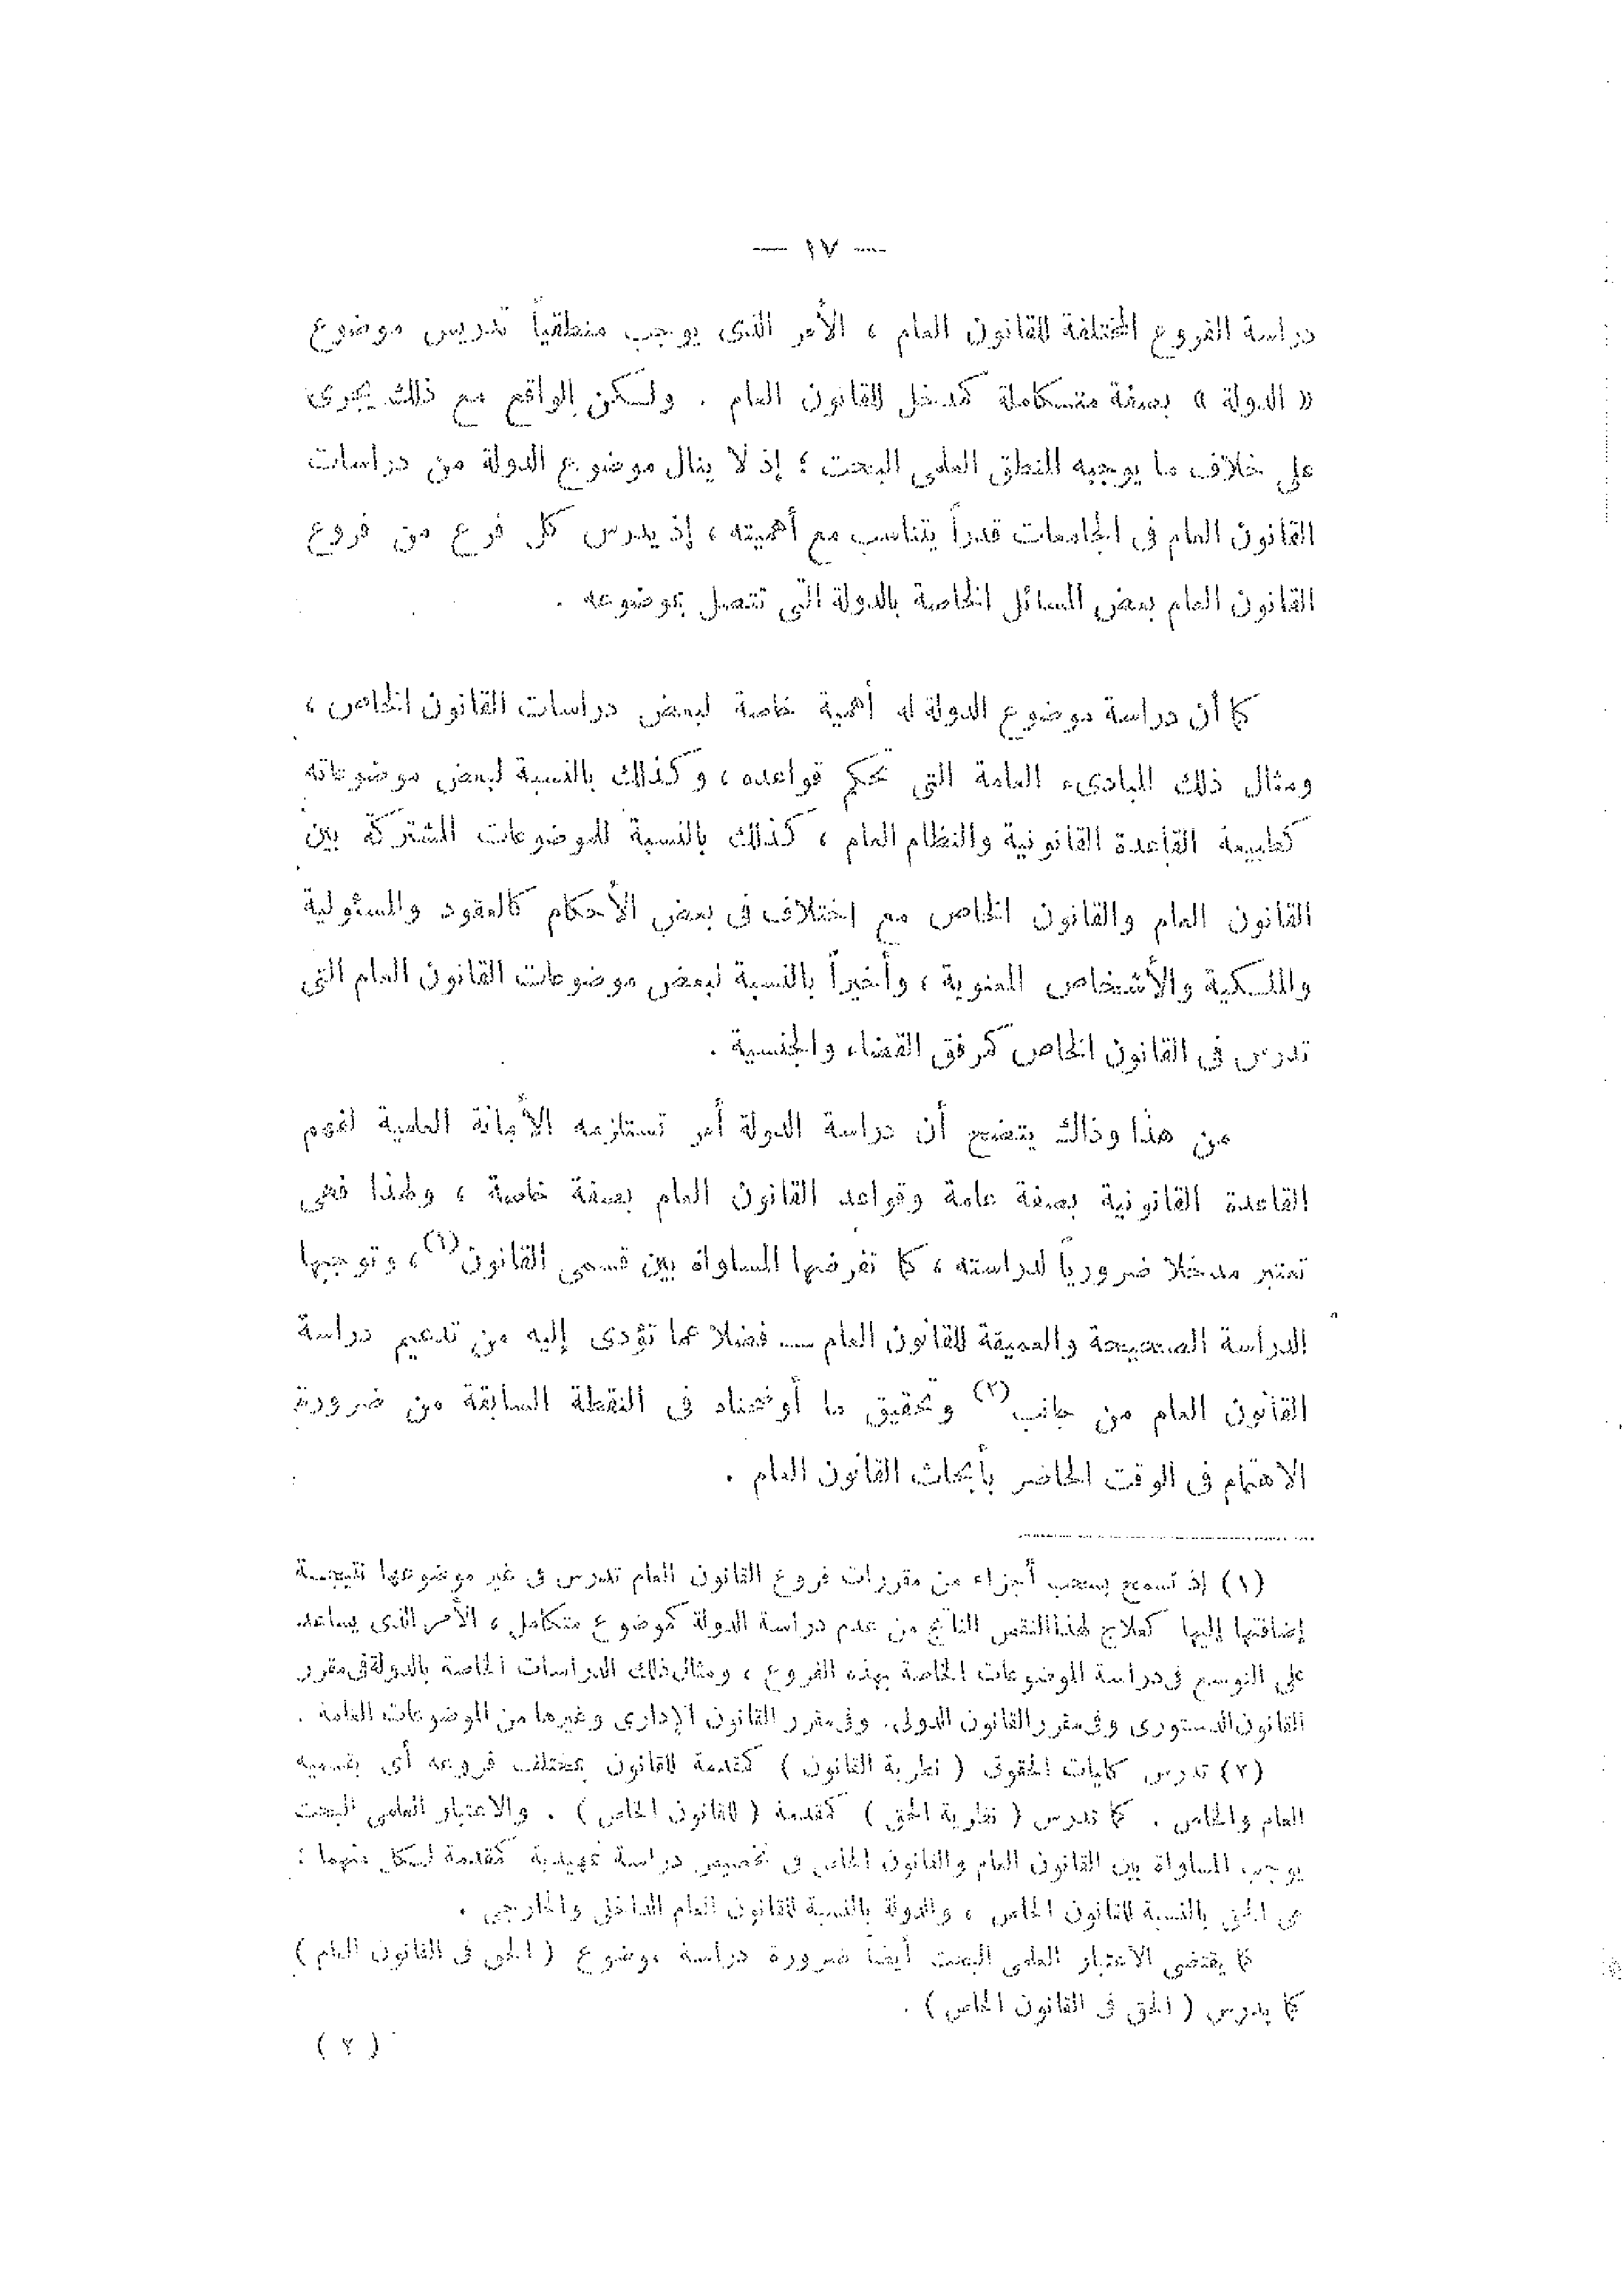 — ١٧ —
دراسة الفروع المختلفة للقانون العام ، الأمر الذى يوجب منطقياً تدريس موضوع
« الدولة » بصفة متكاملة كمدخل للقانون العام . ولكن الواقع مع ذلك يجرى
على خلاف ما يوجبه المنطق العلمى البحت ؛ إذ لا ينال موضوع الدولة من دراسات
القانون العام فى الجامعات قدراً يتناسب مع أهميته ، إذ يدرس كل فرع من فروع
القانون العام بعض المسائل الخاصة بالدولة التى تتصل بموضوعه .
كما أن دراسة موضوع الدولة له أهمية خاصة لبعض دراسات القانون الخاص ،
ومثال ذلك المبادىء العامة التى تحكم قواعده ، وكذلك بالنسبة لبعض موضوعاته
كطبيعة القاعدة القانونية والنظام العام ، كذلك بالنسبة للموضوعات المشتركة بين
القانون العام والقانون الخاص مع اختلاف فى بعض الأحكام كالعقود والمسئولية
والملكية والأشخاص المعنوية ، وأخيراً بالنسبة لبعض موضوعات القانون العام التى
تدرس فى القانون الخاص كمرفق القضاء والجنسية .
من هذا وذاك يتضح أن دراسة الدولة أمر تستلزمه الأمانة العلمية لفهم
القاعدة القانونية بصفة عامة وقواعد القانون العام بصفة خاصة ، ولهذا فهى
تعتبر مدخلا ضرورياً لدراسته ، كما تفرضها المساواة بين قسمى القانون(١) ، وتوجبها
الدراسة الصحيحة والعميقة للقانون العام — فضلا عما تؤدى إليه من تدعيم دراسة
القانون العام من جانب(٢) وتحقيق ما أوضحناه فى النقطة السابقة من ضرورة
الاهتمام فى الوقت الحاضر بأبحاث القانون العام .
(١) إذ تسمح بسحب أجزاء من مقررات فروع القانون العام تدرس فى غير موضوعها نتيجة
إضافتها إليها كعلاج لهذا النقص الناتج من عدم دراسة الدولة كموضوع متكامل ، الأمر الذى يساعد
على التوسع فى دراسة الموضوعات الخاصة بهذه الفروع ، ومثال ذلك الدراسات الخاصة بالدولة فى مقرر
القانون الدستورى وفى مقرر القانون الدولى. وفى مقرر القانون الإدارى وغيرها من الموضوعات العامة .
(٢) تدرس كليات الحقوق ( نظرية القانون ) كمقدمة للقانون بمختلف فروعه أى بقسميه
العام والخاص . كما تدرس ( نظرية الحق ) كمقدمة ( للقانون الخاص ) . والاعتبار العلمى البحت
يوجب المساواة بين القانون العام والقانون الخاص فى تخصيص دراسة تمهيدية كمقدمة لكل منهما :
هى الحق بالنسبة للقانون الخاص ، والدولة بالنسبة للقانون العام الداخلى والخارجى .
كما يقتضى الاعتبار العلمى البحت أيضاً ضرورة دراسة موضوع ( الحق فى القانون العام )
كما يدرس ( الحق فى القانون الخاص ) .
( ٢ )